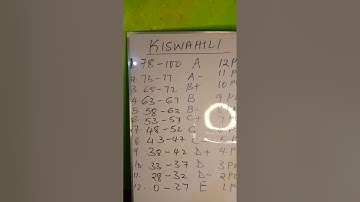 KISWAHILI
1. 78-100 A 12 P
2. 73-77 A- 11 P
3. 65-72 B+ 10 P
4. 63-67 B 9 P
5. 58-62 B-
6. 53-57 C+
7. 48-52 C
8. 43-47
9. 38-42 D+ 4 P
10. 33-37 D 3 Po
11. 28-32 D- 2 Po
12. 0-27 E 1 P